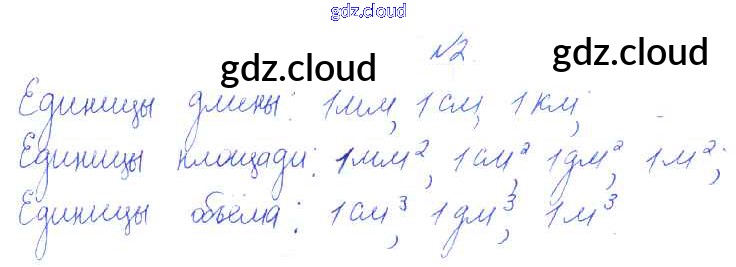 gdz.cloud
№2
gdz.cloud gdz.cloud
Единицы длины: 1мм, 1см, 1км;
Единицы площади: 1мм², 1см², 1дм², 1м²;
Единицы объёма: 1см³, 1дм³, 1м³